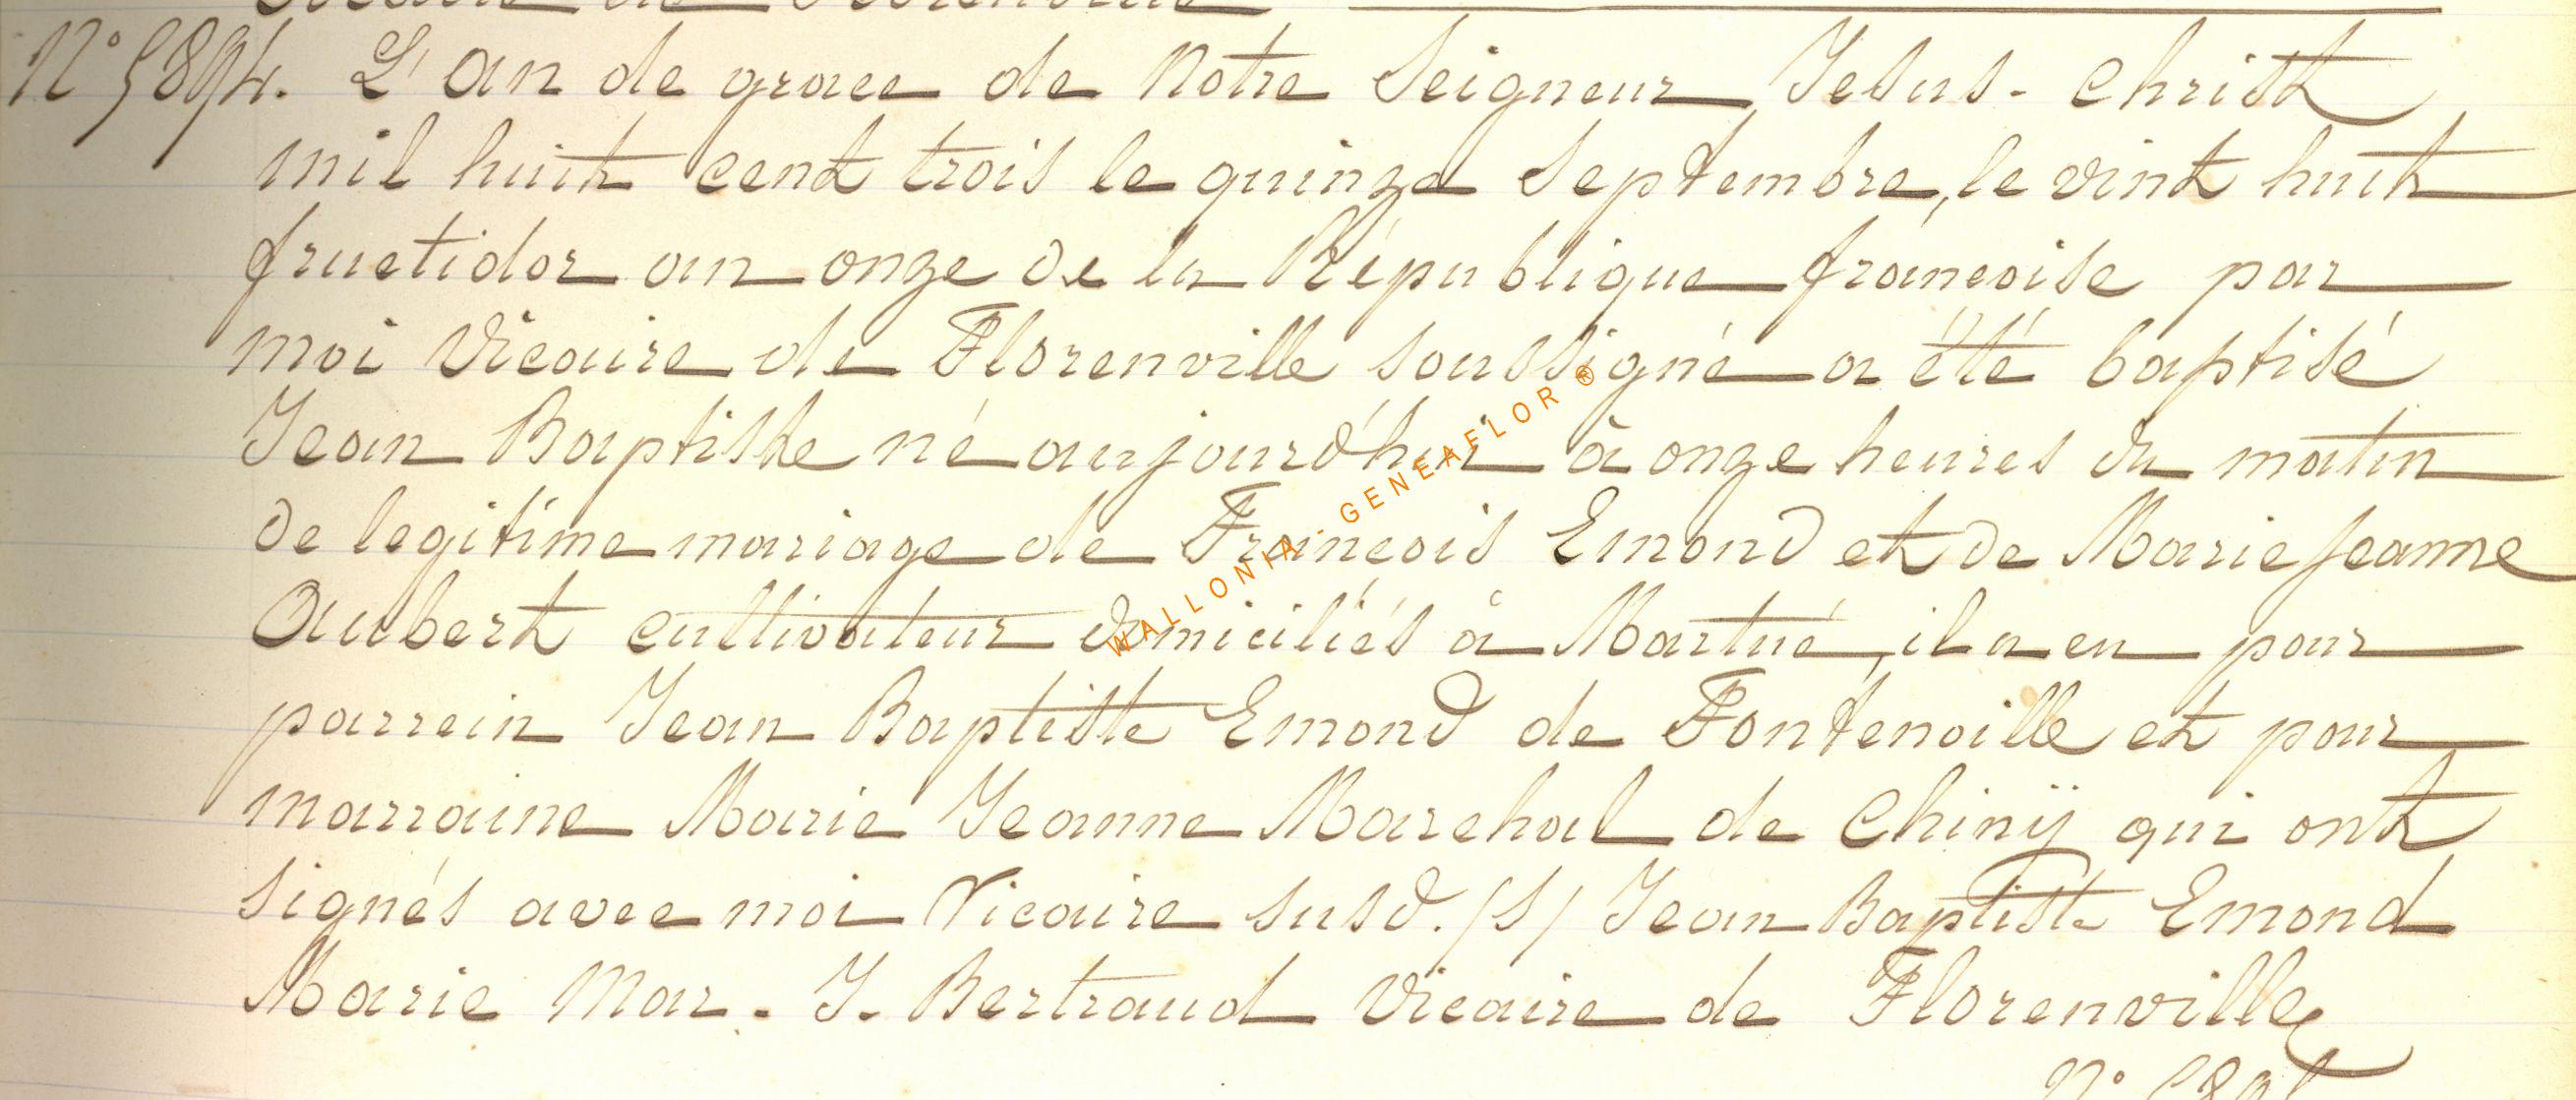 Vicaire de Florenville
N° 5894. L'an de grace de Notre Seigneur Jesus-Christ
mil huit cent trois le quinze Septembre, le vint huit
fructidor an onze de la République françoise par
moi Vicaire de Florenville soussigné a été baptisé
Jean Baptiste né aujourd'hui à onze heures du matin
de legitime mariage de François Emond et de Marie Jeanne
Aubert cultivateur domiciliés à Martué, il a eu pour
parrein Jean Baptiste Emond de Fontenoille et pour
marraine Marie Jeanne Marchal de Chinÿ qui ont
signés avec moi Vicaire susd. (S) Jean Baptiste Emond
Marie Mar. J. Bertrand Vicaire de Florenville
WALLONIA - GENEAFLOR ®